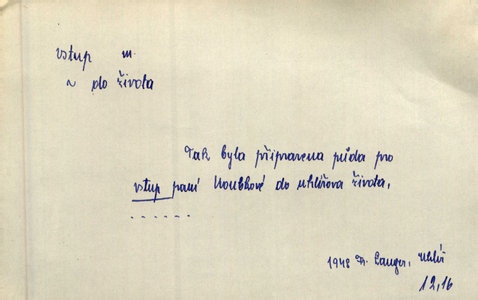 vstup m.
~ do života
Tak byla připravena půda pro
vstup paní Koubkové do uhlířova života.
. . . . . .
1948 Fr. Langer, Uhlíř
12,16